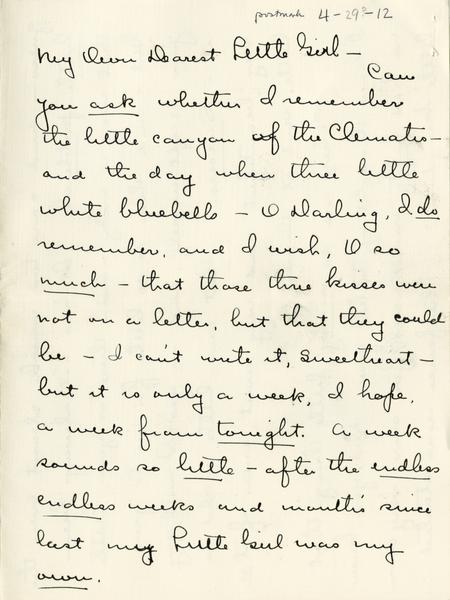 postmark 4-29?-12
My Own Dearest Little Girl -
Can
you ask whether I remember
the little canyon of the Clematis -
and the day when three little
white bluebells - O Darling, I do
remember, and I wish, O so
much - that those three kisses were
not on a letter, but that they could
be - I can't write it, Sweetheart -
but it is only a week, I hope,
a week from tonight. A week
sounds so little - after the endless
endless weeks and months since
last my Little Girl was my
own.